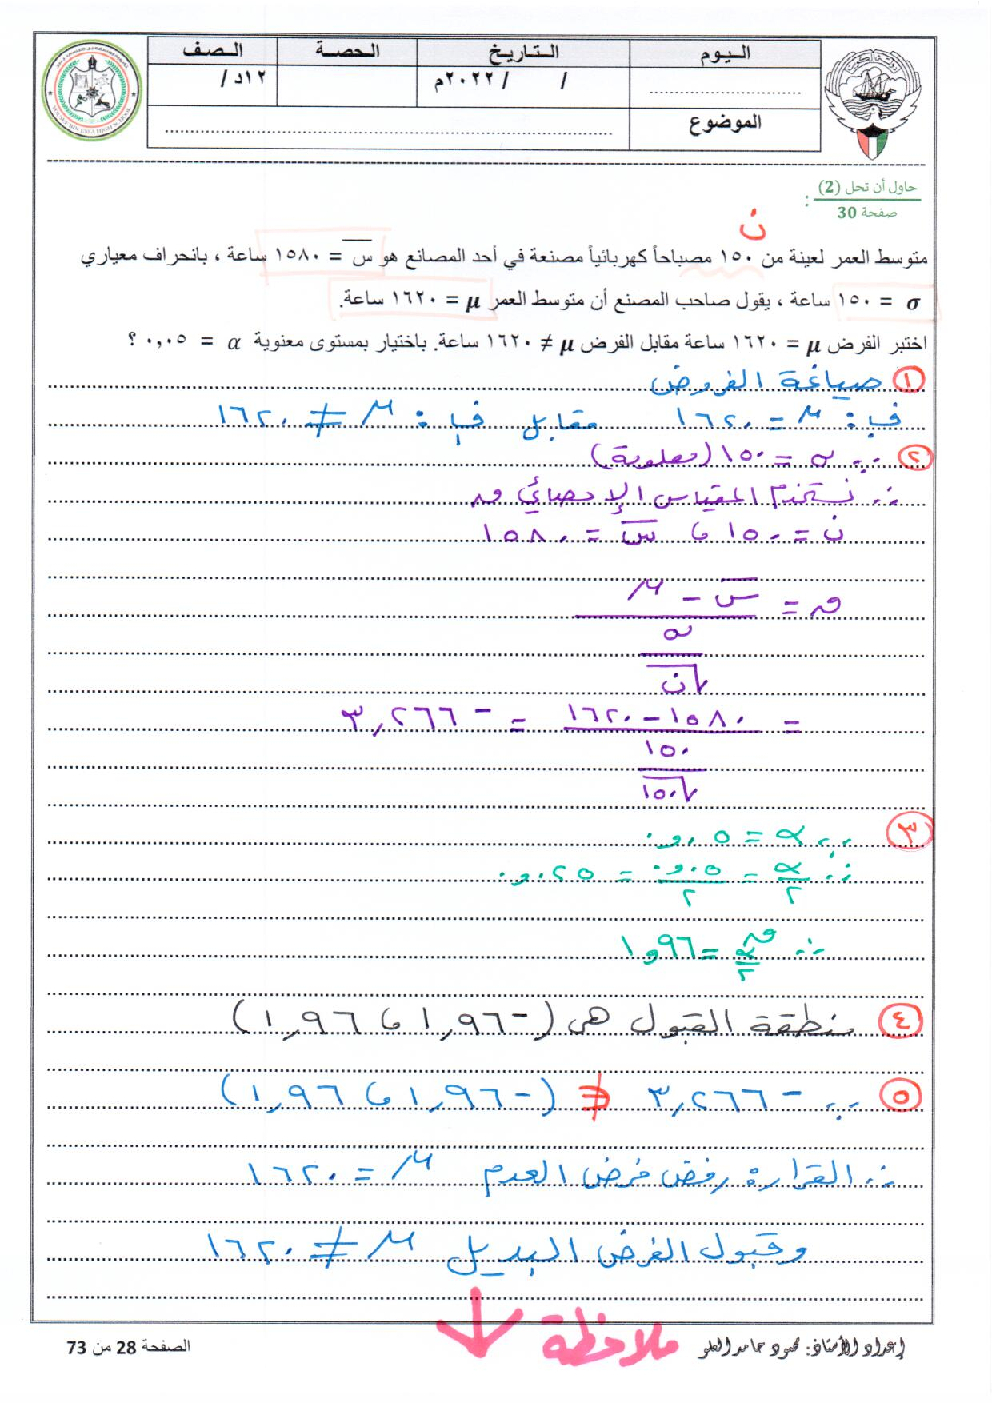 اليوم التاريخ الحصة الصف
/ / ٢٠٢٢م ١٢د /
الموضوع
حاول أن تحل (2)
صفحة 30 :
ن
متوسط العمر لعينة من ١٥٠ مصباحاً كهربائياً مصنعة في أحد المصانع هو س̄ = ١٥٨٠ ساعة ، بانحراف معياري
σ = ١٥٠ ساعة ، يقول صاحب المصنع أن متوسط العمر μ = ١٦٢٠ ساعة.
اختبر الفرض μ = ١٦٢٠ ساعة مقابل الفرض μ ≠ ١٦٢٠ ساعة. باختيار بمستوى معنوية α = ٠,٠٥ ؟
١ صياغة الفروض
ف٠ : μ = ١٦٢٠ مقابل ف١ : μ ≠ ١٦٢٠
٢ ∵ σ = ١٥٠ (معلومة)
∴ نستخدم المقياس الإحصائي ق
ن = ١٥٠ ، س̄ = ١٥٨٠
ق = (س̄ - μ) / (σ / √ن)
= (١٥٨٠ - ١٦٢٠) / (١٥٠ / √١٥٠) = -٣,٢٦٦
٣ ∵ α = ٠,٠٥
∴ α/٢ = ٠,٠٥/٢ = ٠,٠٢٥
∴ ق α/٢ = ١,٩٦
٤ منطقة القبول هي (-١,٩٦ ، ١,٩٦)
٥ ∵ -٣,٢٦٦ ∉ (-١,٩٦ ، ١,٩٦)
∴ القرار: رفض فرض العدم μ = ١٦٢٠
وقبول الفرض البديل μ ≠ ١٦٢٠
ملاحظة ↓
إعداد الأستاذ: محمود حامد العلو
الصفحة 28 من 73